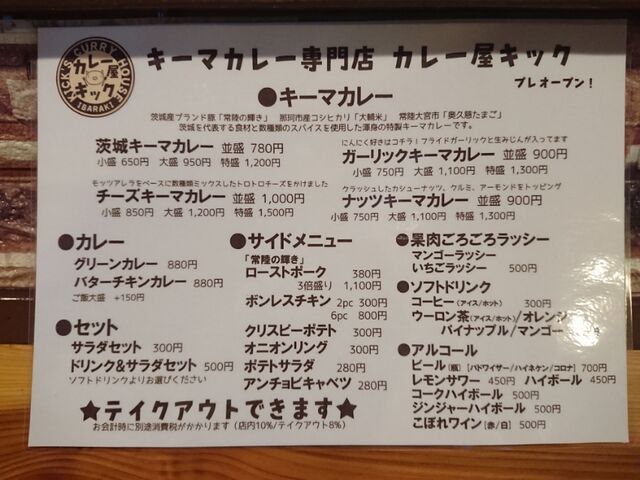 KICK'S CURRY HOUSE
カレー屋
キック
IBARAKI
キーマカレー専門店 カレー屋キック
プレオープン！
●キーマカレー
茨城産ブランド豚「常陸の輝き」 那珂市産コシヒカリ「大輔米」 常陸大宮市「奥久慈たまご」
茨城を代表する食材と数種類のスパイスを使用した渾身の特製キーマカレーです。
茨城キーマカレー 並盛 780円
小盛 650円 大盛 950円 特盛 1,200円
にんにく好きはコチラ！フライドガーリックと生みじんが入ってます
ガーリックキーマカレー 並盛 900円
小盛 750円 大盛 1,100円 特盛 1,300円
モッツアレラをベースに数種類ミックスしたトロトロチーズをかけました
チーズキーマカレー 並盛 1,000円
小盛 850円 大盛 1,200円 特盛 1,500円
クラッシュしたカシューナッツ、クルミ、アーモンドをトッピング
ナッツキーマカレー 並盛 900円
小盛 750円 大盛 1,100円 特盛 1,300円
●カレー
グリーンカレー 880円
バターチキンカレー 880円
ご飯大盛 +150円
●セット
サラダセット 300円
ドリンク&サラダセット 500円
ソフトドリンクよりお選びください
●サイドメニュー
「常陸の輝き」
ローストポーク 380円
3倍盛り 1,100円
ボンレスチキン 2pc 300円
6pc 800円
クリスピーポテト 300円
オニオンリング 300円
ポテトサラダ 280円
アンチョビキャベツ 280円
●果肉ごろごろラッシー
マンゴーラッシー
いちごラッシー 500円
●ソフトドリンク
コーヒー(アイス/ホット) 300円
ウーロン茶(アイス/ホット)/オレンジ
パイナップル/マンゴー
●アルコール
ビール(瓶)[バドワイザー/ハイネケン/コロナ] 700円
レモンサワー 450円 ハイボール 450円
コークハイボール 500円
ジンジャーハイボール 500円
こぼれワイン[赤/白] 500円
★テイクアウトできます★
お会計時に別途消費税がかかります(店内10%/テイクアウト8%)